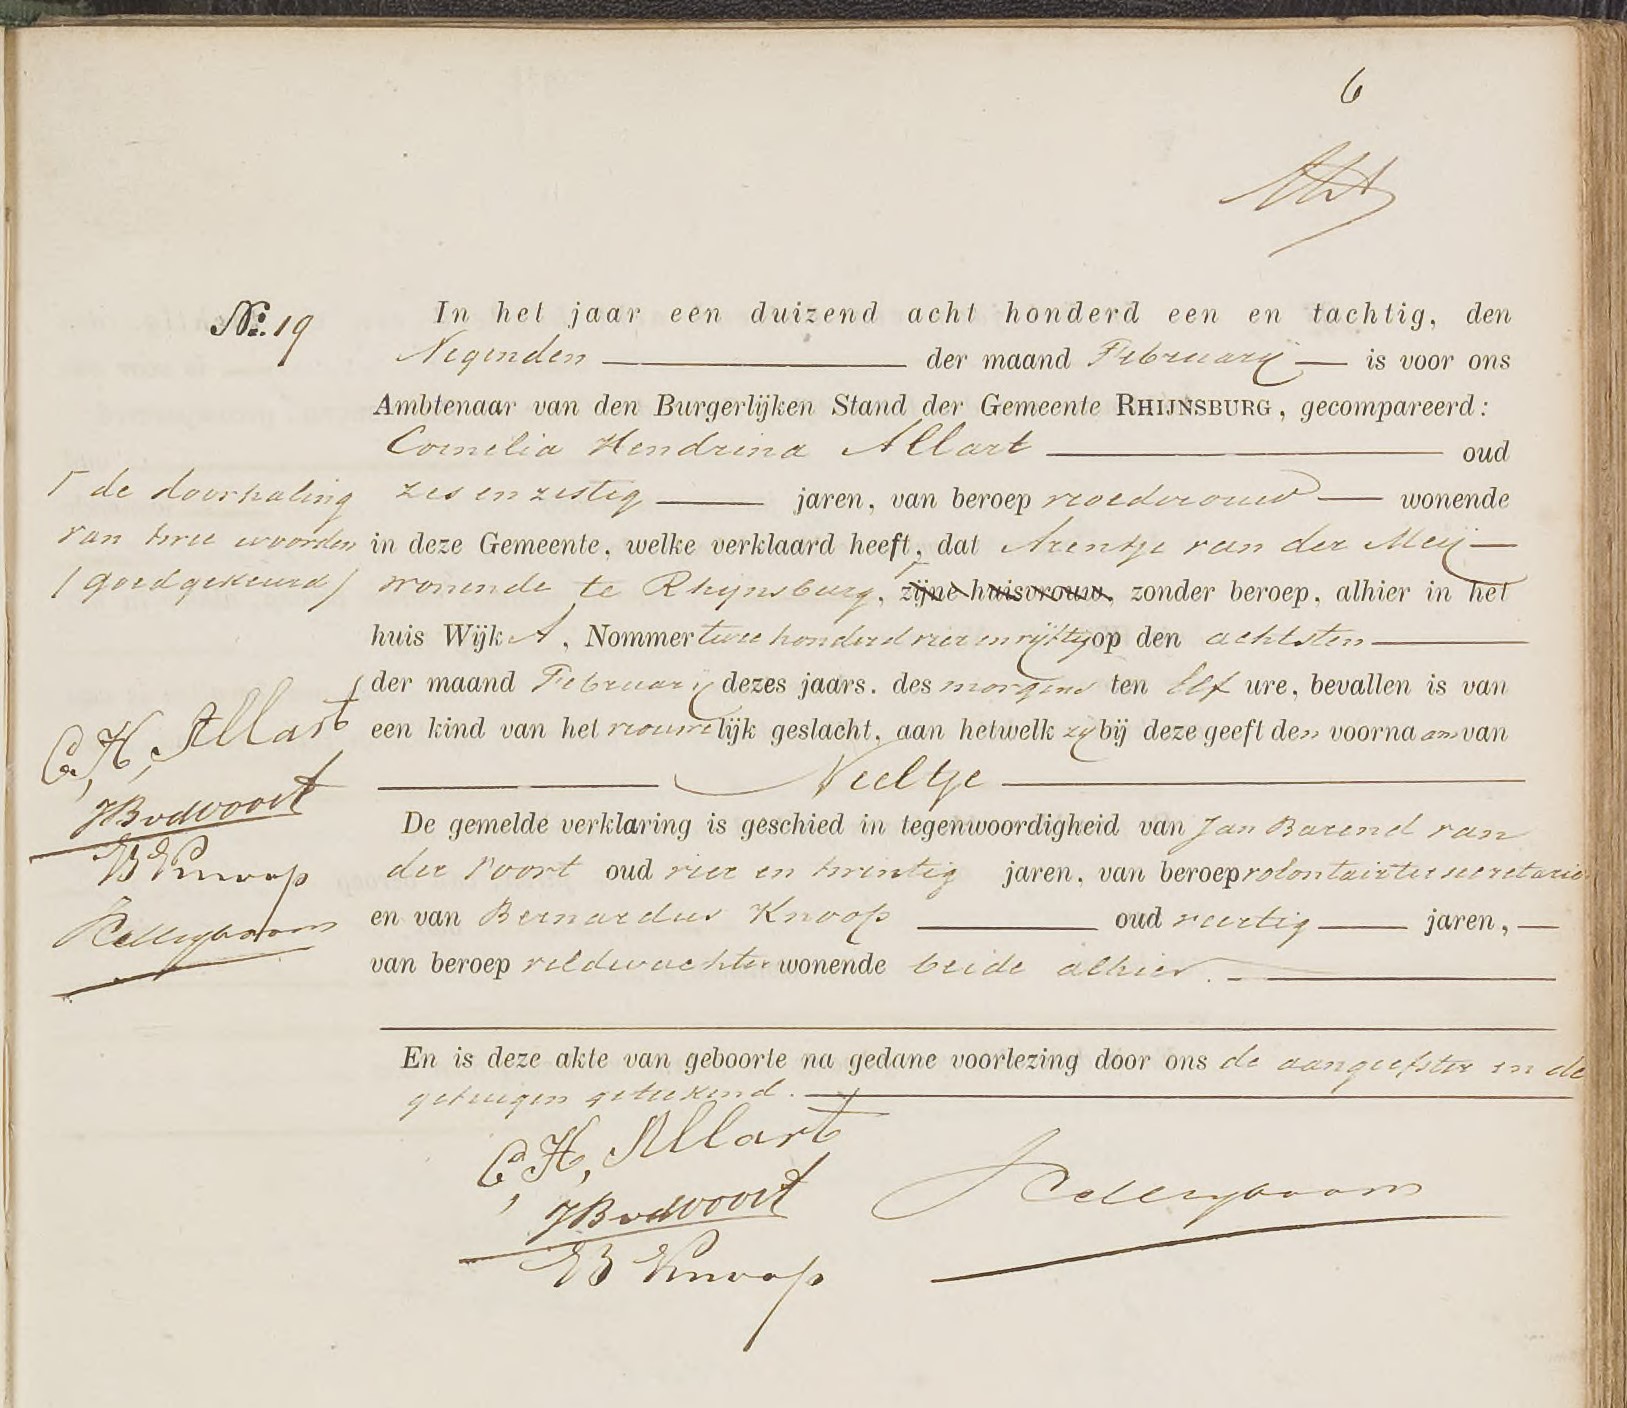 6
No. 19
In het jaar een duizend acht honderd een en tachtig, den
Negenden der maand Februarij is voor ons
Ambtenaar van den Burgerlijken Stand der Gemeente RHIJNSBURG, gecompareerd:
Cornelia Hendrina Allart oud
zes en zestig jaren, van beroep vroedvrouw wonende
in deze Gemeente, welke verklaard heeft, dat Arentje van der Meij
wonende te Rhijnsburg, zijne huisvrouw, zonder beroep, alhier in het
huis Wijk A, Nommer twee honderd vier en vijftig op den achtsten
der maand Februarij dezes jaars. des morgens ten Elf ure, bevallen is van
een kind van het vrouwelijk geslacht, aan hetwelk zij bij deze geeft den voornaam van
Neeltje
De gemelde verklaring is geschied in tegenwoordigheid van Jan Barend van
der Voort oud vier en twintig jaren, van beroep volontair ter secretarie
en van Bernardus Knoop oud veertig jaren,
van beroep veldwachter wonende beide alhier.
En is deze akte van geboorte na gedane voorlezing door ons de aangeefster en de
getuigen geteekend.
C. H. Allart
JBvdVoort
B Knoop
de doorhaling
van twee woorden
goedgekeurd
C. H. Allart
JBvdVoort
B Knoop